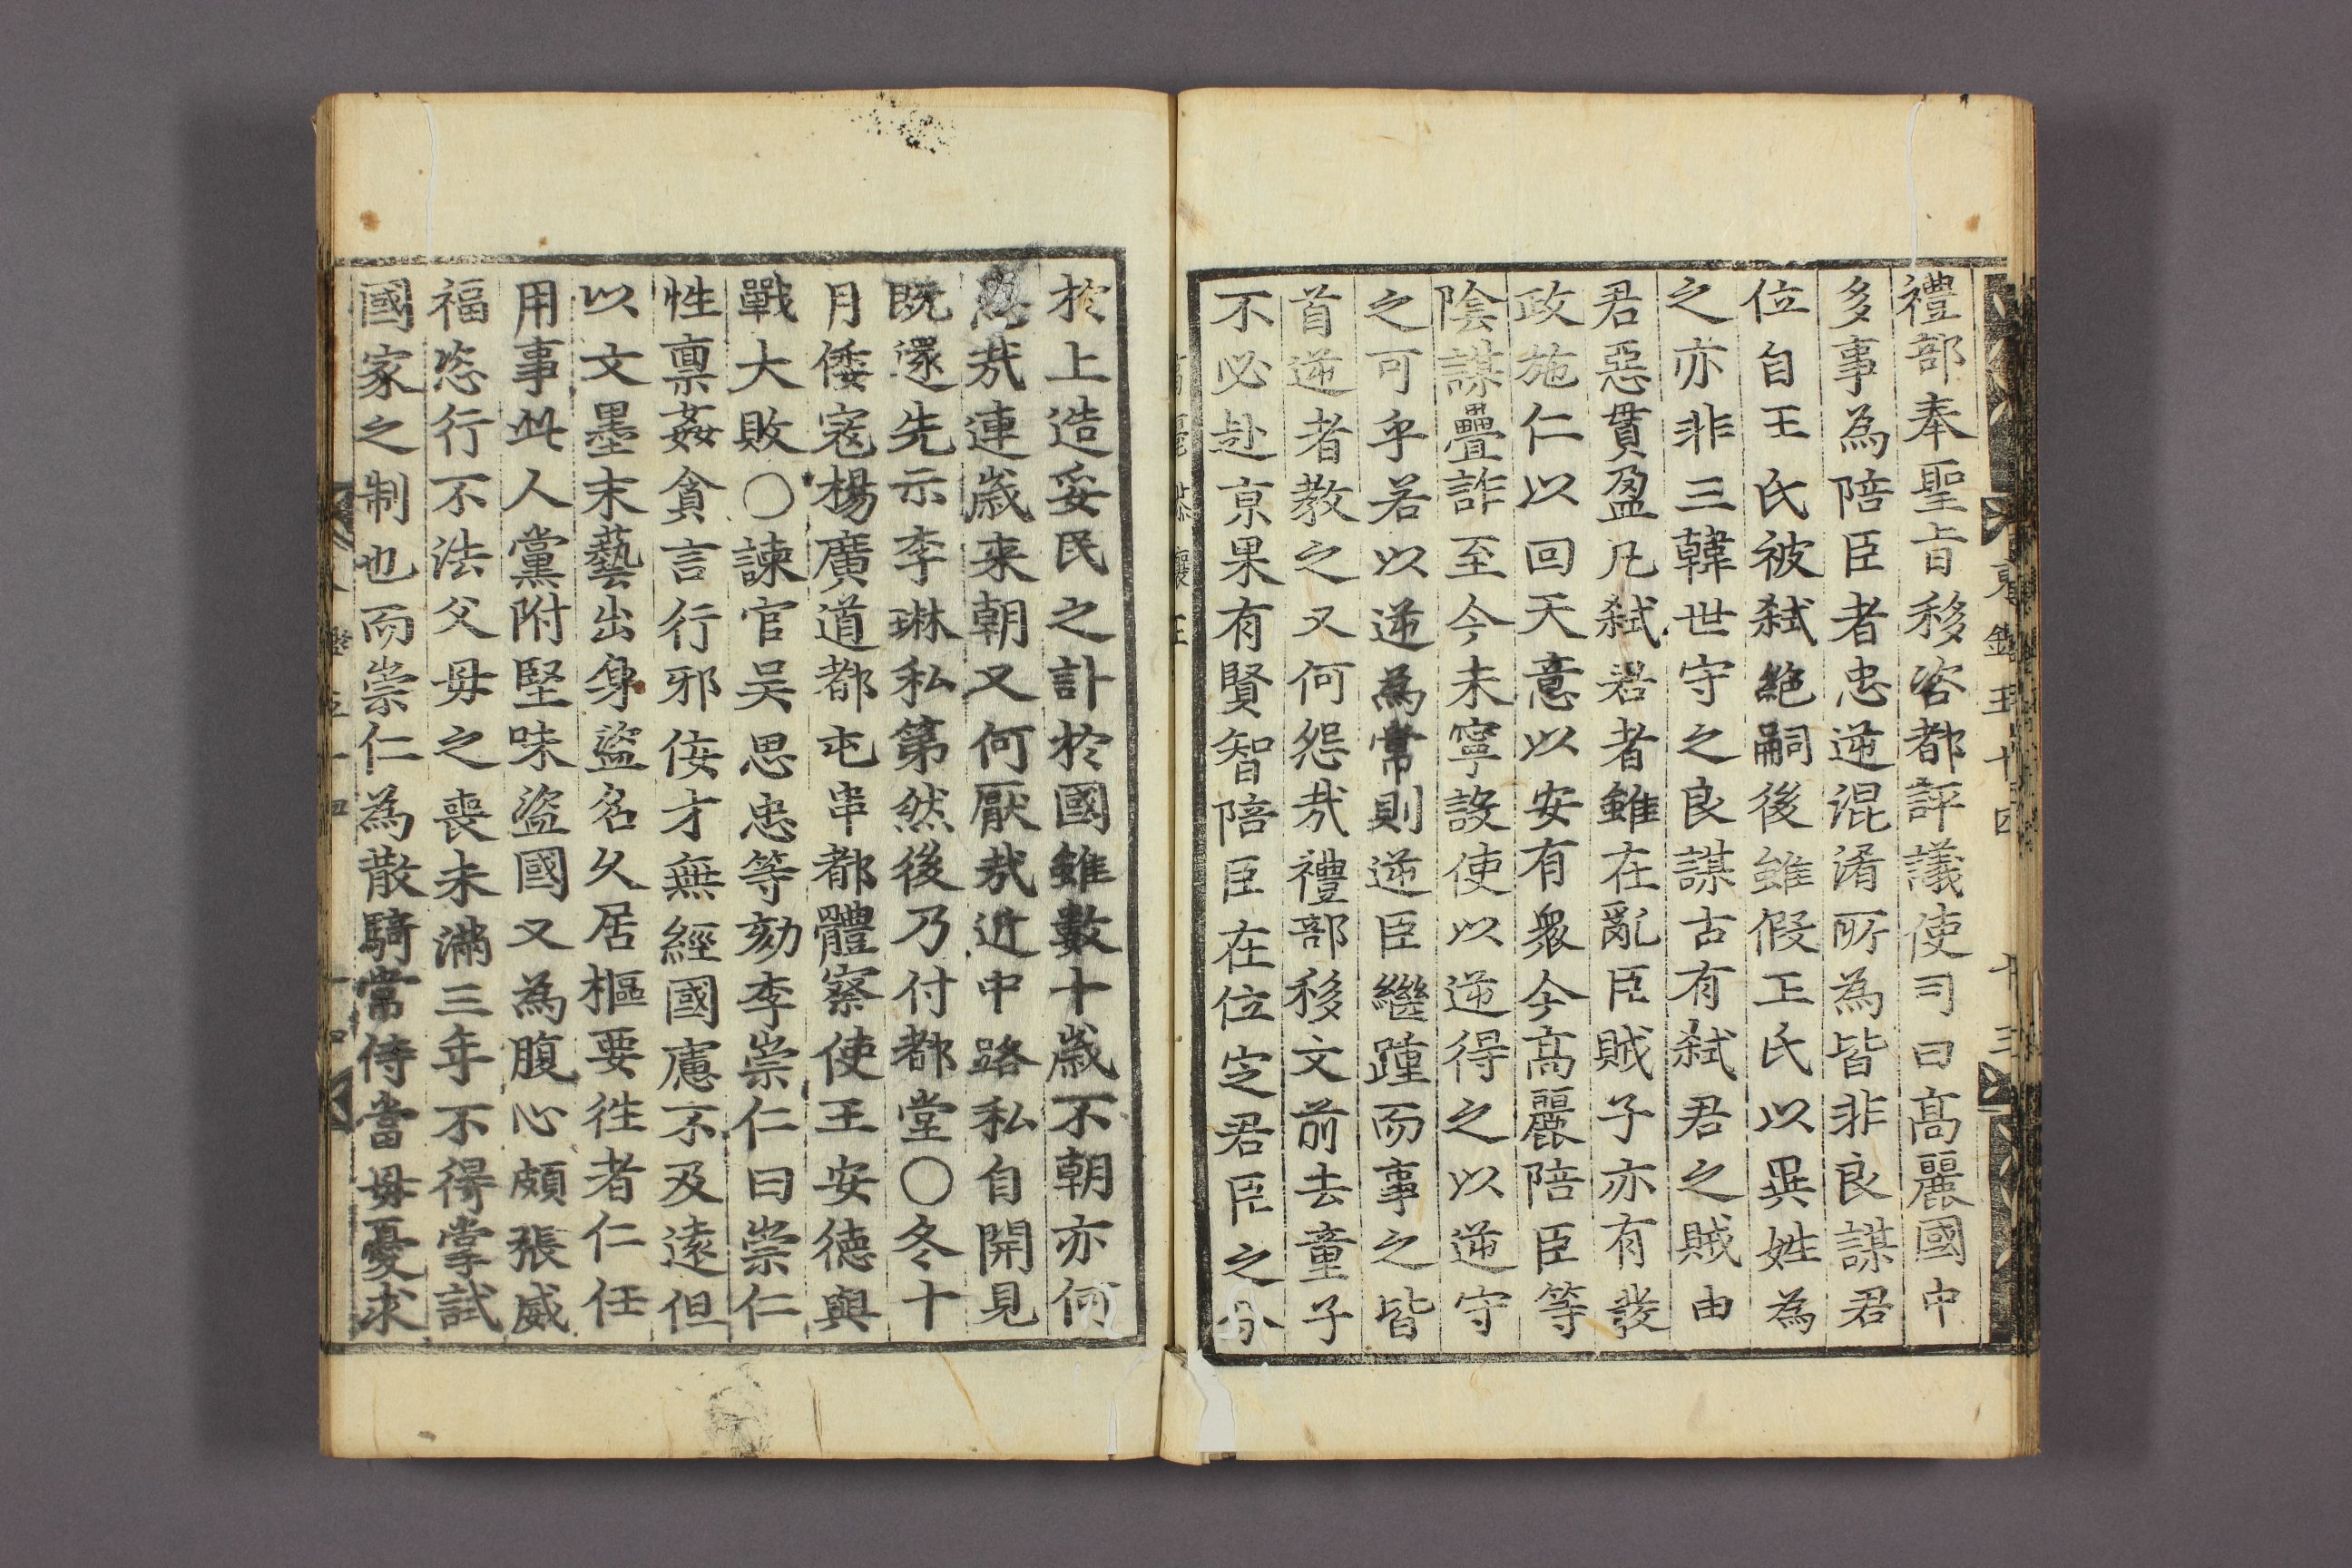 東鑑五十四 十三
禮部奉聖旨移咨都評議使司曰高麗國中
多事為陪臣者忠逆混淆所為皆非良謀君
位自王氏被弑絶嗣後雖假王氏以異姓為
之亦非三韓世守之良謀古有弑君之賊由
君惡貫盈凡弑君者雖在亂臣賊子亦有發
政施仁以回天意以安有衆今高麗陪臣等
陰謀疊詐至今未寧設使以逆得之以逆守
之可乎若以逆為常則逆臣繼踵而事之皆
首逆者教之又何怨㢤禮部移文前去童子
不必赴京果有賢智陪臣在位定君臣之分
於上造妥民之計於國雖數十歲不朝亦何
㢤連歲来朝又何厭㢤近中路私自開見
既還先示李琳私第然後乃付都堂○冬十
月倭寇楊廣道都屯串都體察使王安德與
戰大敗○諫官吴思忠等劾李崇仁曰崇仁
性禀姦貪言行邪侫才無經國慮不及遠但
以文墨末藝出身盜名久居樞要徃者仁任
用事此人黨附堅味盜國又為腹心頗張威
福恣行不法父毋之喪未滿三年不得掌試
國家之制也而崇仁為散騎常侍當毋憂求